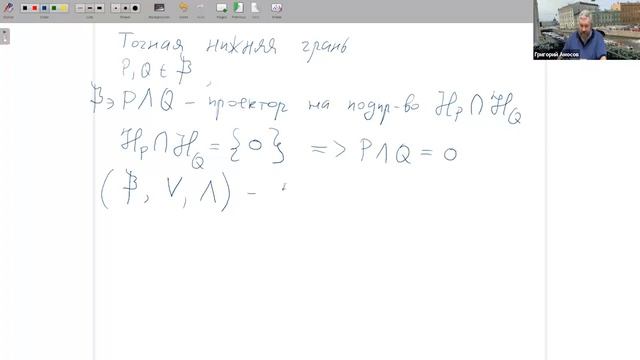 Точная нижняя грань
P, Q ∈ 𝔓
𝔓 ∋ P ∧ Q - проектор на подпр-во ℋ_P ∩ ℋ_Q
ℋ_P ∩ ℋ_Q = {0} => P ∧ Q = 0
(𝔓, ∨, ∧) -
Григорий Амосов